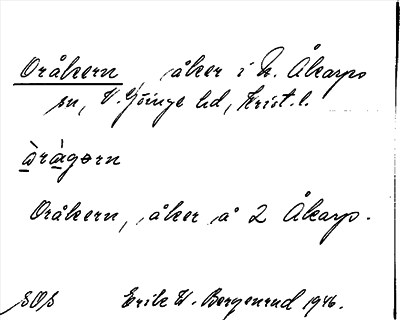 Oråkern, åker i N. Åkarps
sn, V. Göinge hd, Krist. l.
àràgərn
Oråkern, åker å 2 Åkarp.
SOS Erik W. Bergenrud 1946.